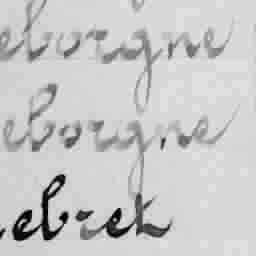 eborgne
eborgne
ebrek